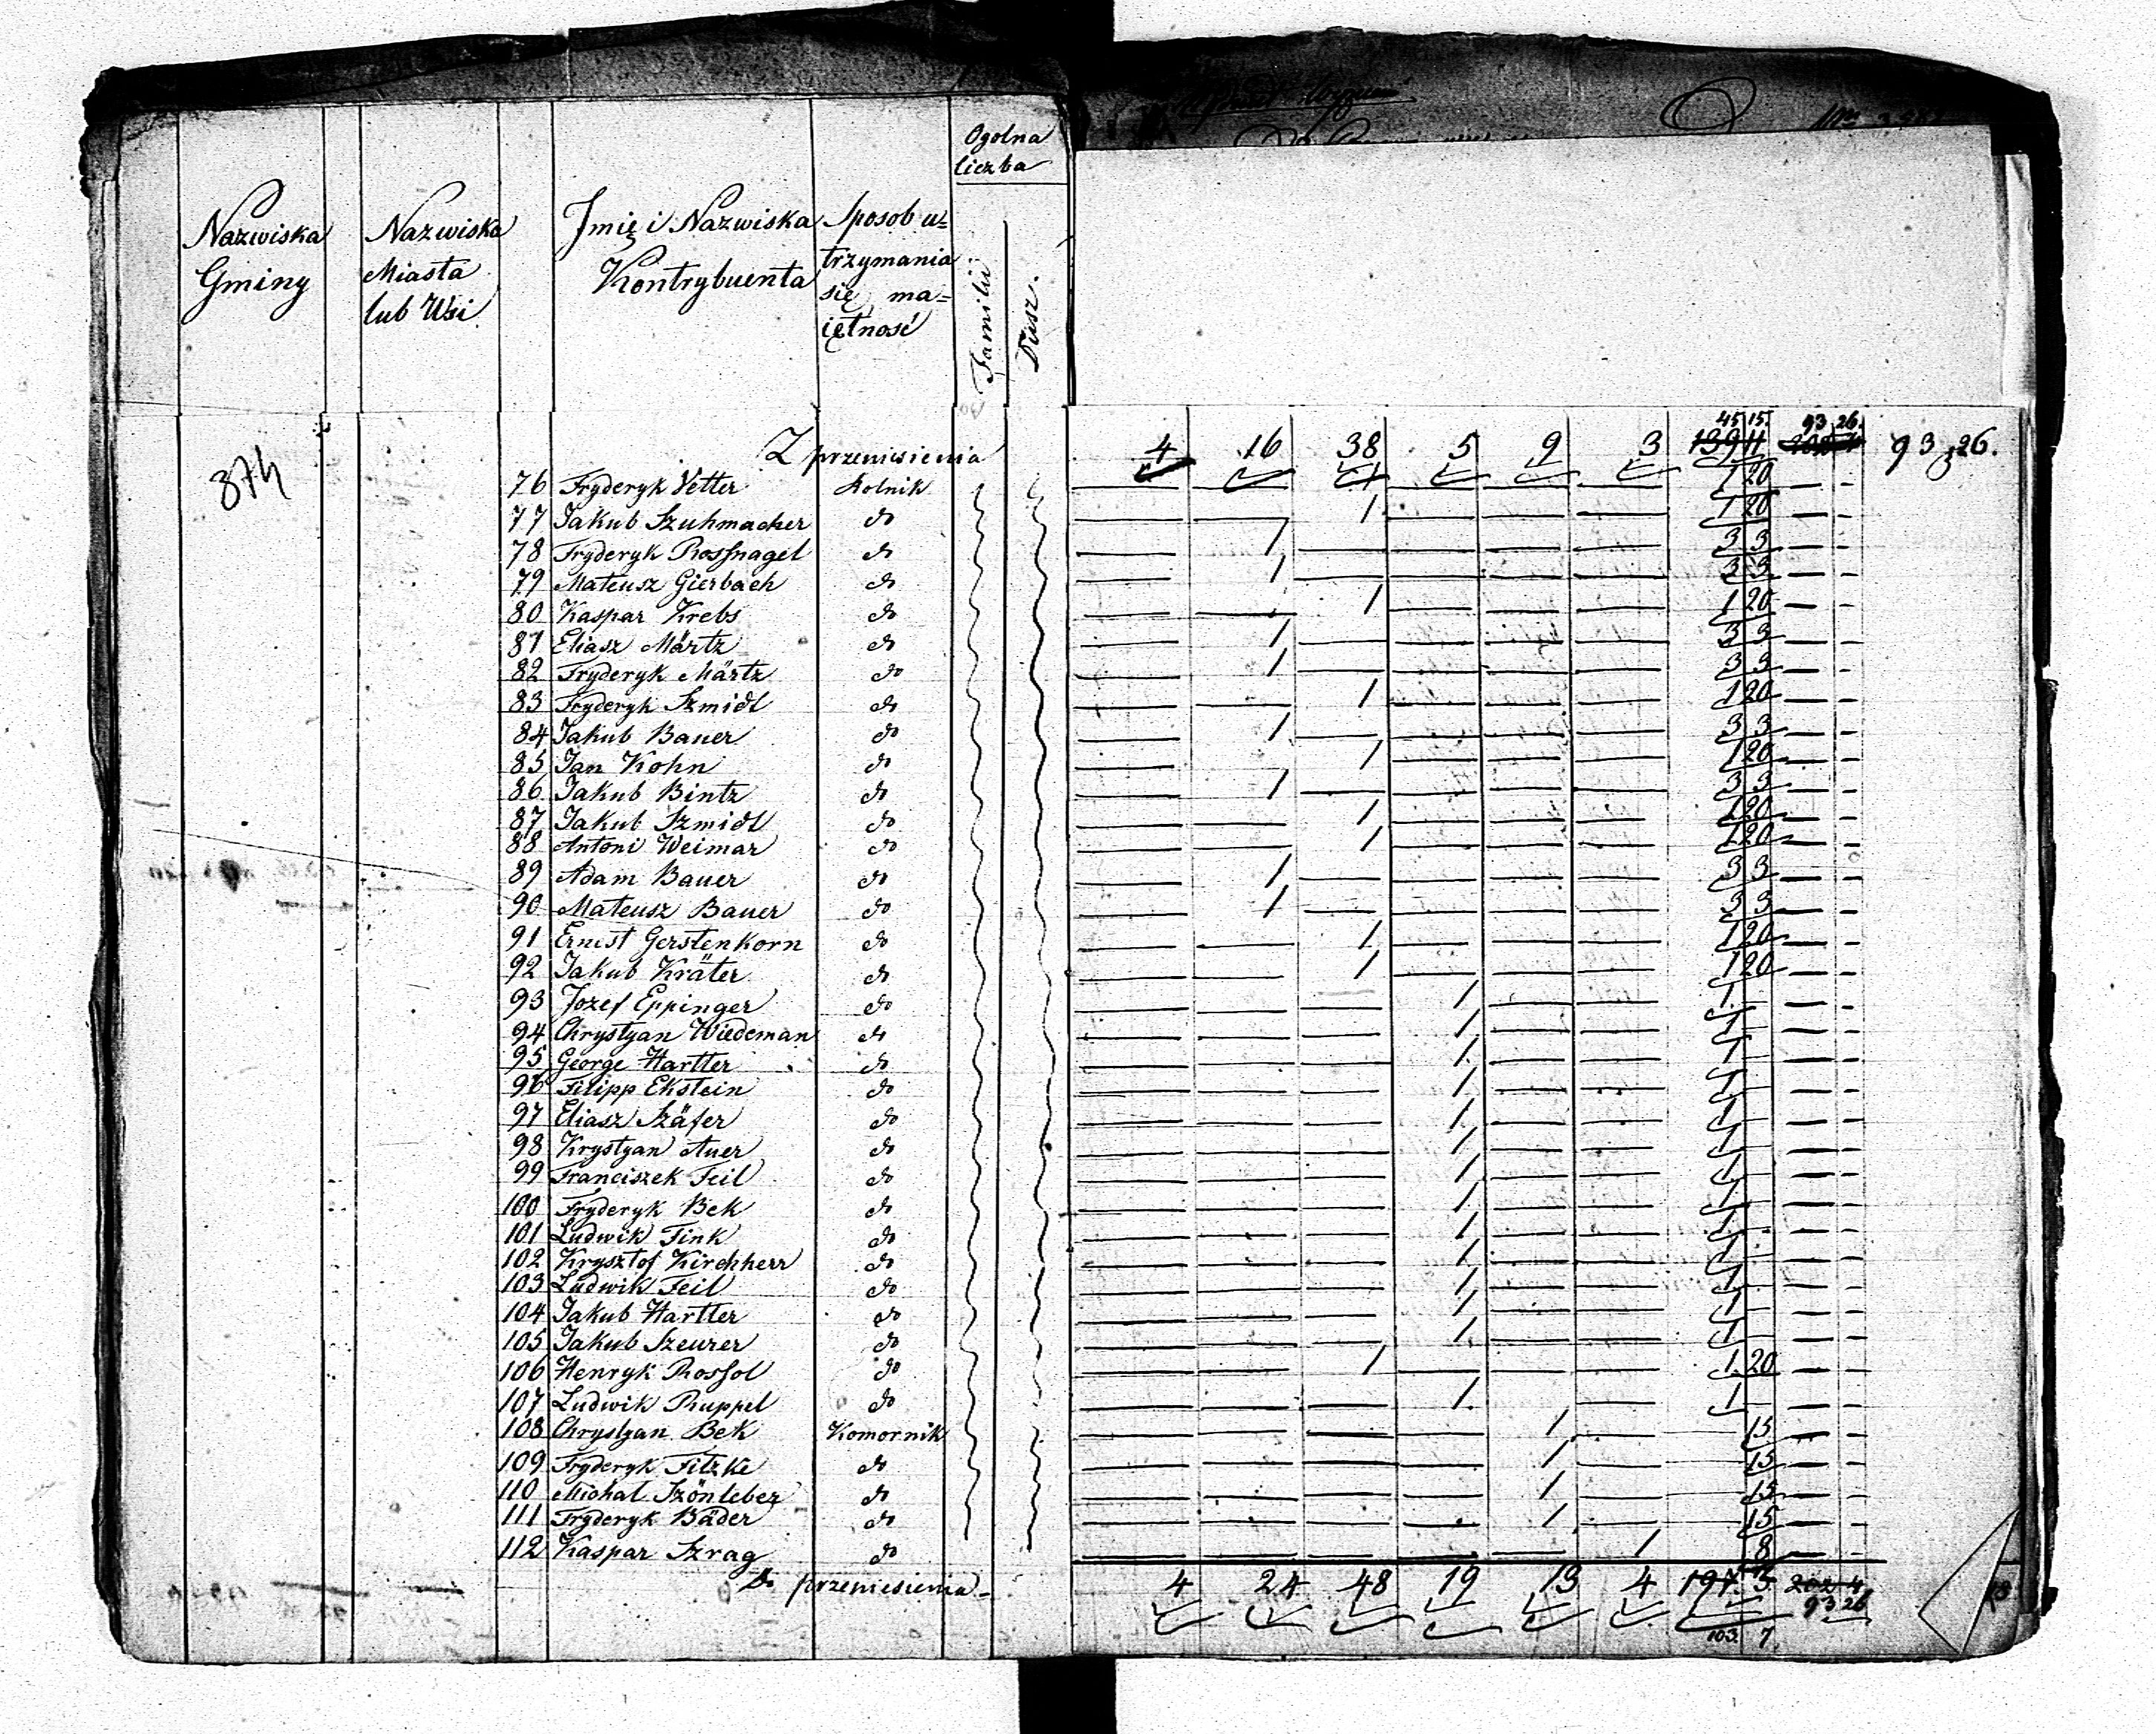 Ogolna
liczba
Nazwiska
Gminy
Nazwiska
Miasta
lub Wsi
Jmię i Nazwiska
Kontrybuenta
Sposob u=
trzymania
się, ma=
iętność
Familii
Dusz.
874
Z przeniesienia 4 16 38 5 9 3 139 11 45 15. 93 26. 93 26.
76 Fryderyk Vetter Rolnik — — 1 — — — 1 20 — -
77 Jakub Szuhmacher do — — 1 — — — 1 20 — -
78 Fryderyk Rossnagel do — 1 — — — — 3 3 — -
79 Mateusz Gierbach do — 1 — — — — 3 3 — -
80 Kaspar Krebs do — — 1 — — — 1 20 — -
81 Eliasz Märtz do — 1 — — — — 3 3 — -
82 Fryderyk Märtz do — 1 — — — — 3 3 — -
83 Fryderyk Szmidt do — — 1 — — — 1 20 — -
84 Jakub Bauer do — 1 — — — — 3 3 — -
85 Jan Kohn do — — 1 — — — 1 20 — -
86 Jakub Bintz do — 1 — — — — 3 3 — -
87 Jakub Szmidt do — — 1 — — — 1 20 — -
88 Antoni Weimar do — — 1 — — — 1 20 — -
89 Adam Bauer do — 1 — — — — 3 3 — -
90 Mateusz Bauer do — 1 — — — — 3 3 — -
91 Ernest Gerstenkorn do — — 1 — — — 1 20 — -
92 Jakub Kräter do — — 1 — — — 1 20 — -
93 Jozef Eppinger do — — — 1 — — 1 — — -
94 Chrystyan Wiedeman do — — — 1 — — 1 — — -
95 George Hartter do — — — 1 — — 1 — — -
96 Filipp Ekstein do — — — 1 — — 1 — — -
97 Eliasz Szäfer do — — — 1 — — 1 — — -
98 Krystyan Auer do — — — 1 — — 1 — — -
99 Franciszek Feil do — — — 1 — — 1 — — -
100 Fryderyk Bek do — — — 1 — — 1 — — -
101 Ludwik Fink do — — — 1 — — 1 — — -
102 Krysztof Kirchherr do — — — 1 — — 1 — — -
103 Ludwik Feil do — — — 1 — — 1 — — -
104 Jakub Hartter do — — — 1 — — 1 — — -
105 Jakub Szeurer do — — — 1 — — 1 — — -
106 Henryk Rossol do — — 1 — — — 1 20 — -
107 Ludwik Ruppel do — — — 1 — — 1 — — -
108 Chrystyan Bek Komornik — — — — 1 — — 15 — -
109 Fryderyk Fitzke do — — — — 1 — — 15 — -
110 Michal Szönleber do — — — — 1 — — 15 — -
111 Fryderyk Bäder do — — — — 1 — — 15 — -
112 Kaspar Szrag do — — — — — 1 8 — -
Do przeniesienia 4 24 48 19 13 4 197 3 202 4
93 26
103. 7